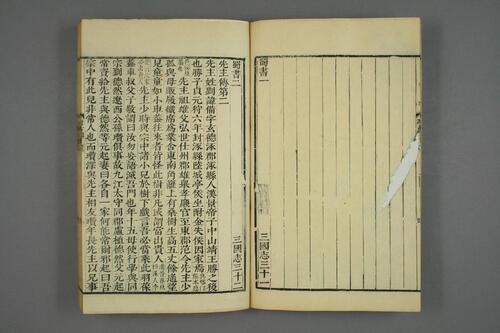 蜀書一
三國志三十一
蜀書二
三國志三十二
先主傳第二
先主姓劉諱備字玄德涿郡涿縣人漢景帝子中山靖王勝之後
也勝子貞元狩六年封涿縣陸城亭侯坐酎金失侯因家焉
先主祖雄父弘世仕州郡雄舉孝廉官至東郡范令先主少
孤與母販履織席為業舍東南角籬上有桑樹生高五丈餘遙望
見童童如小車蓋往來者皆怪此樹非凡或謂當出貴人
先主少時與宗中諸小兒於樹下戲言吾必當乘此羽葆
蓋車叔父子敬謂曰汝勿妄語滅吾門也年十五母使行學與同
宗劉德然遼西公孫瓚俱事故九江太守同郡盧植德然父元起
常資給先主與德然等元起妻曰各自一家何能常爾邪起曰吾
宗中有此兒非常人也而瓚深與先主相友瓚年長先主以兄事